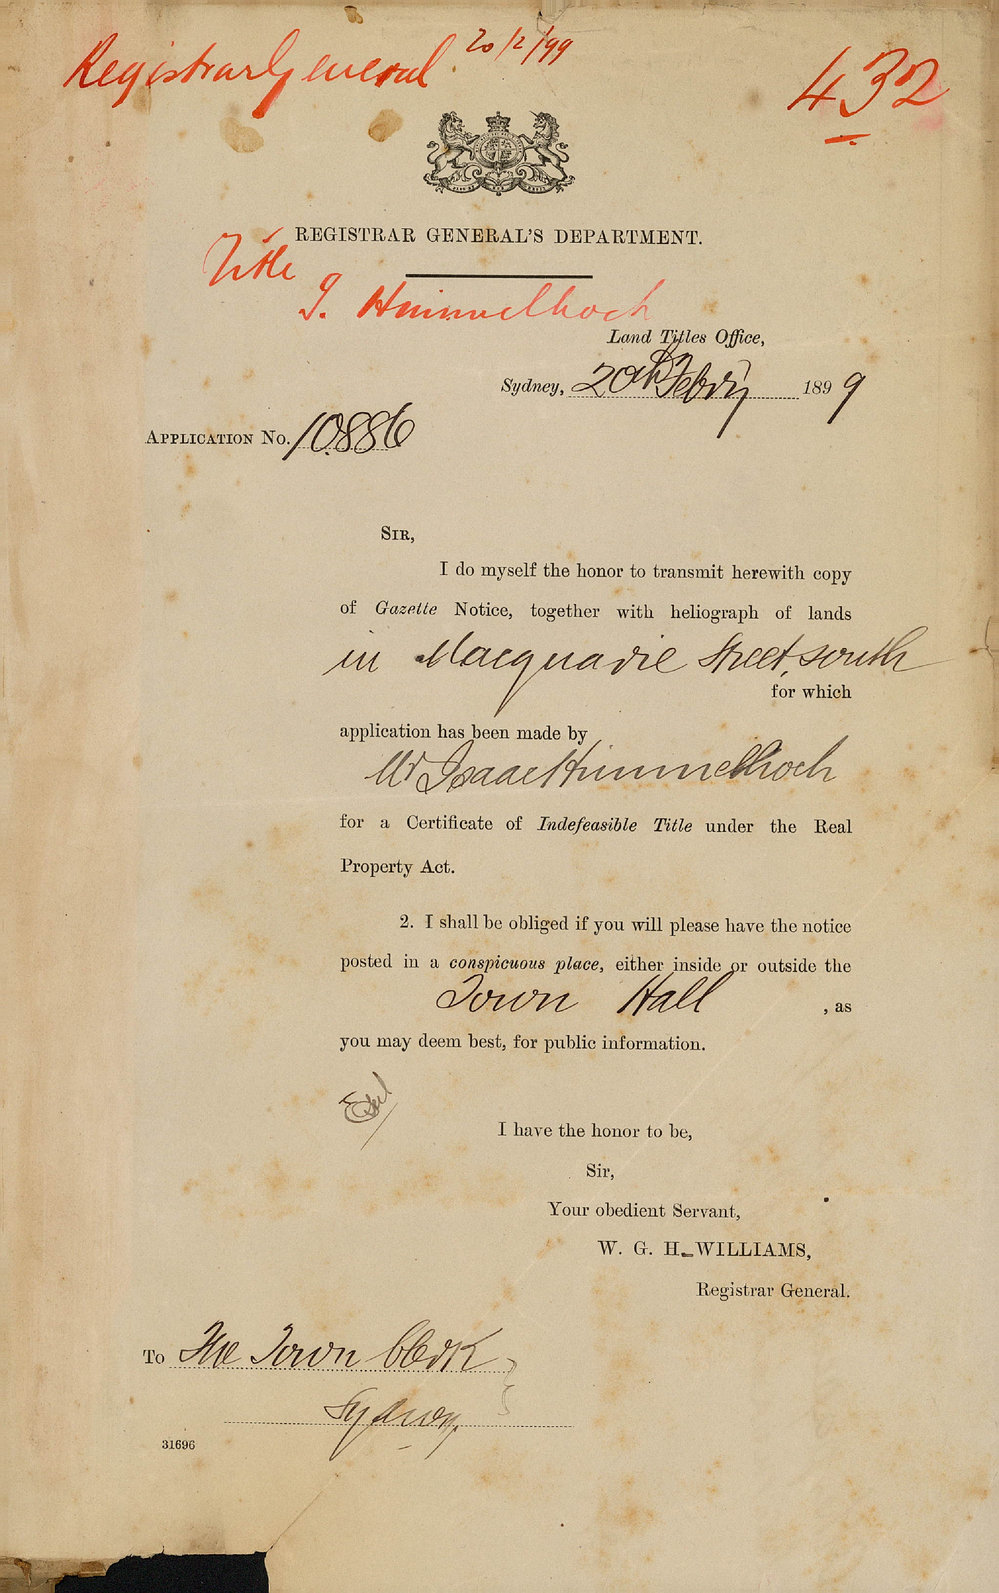 Registrar General 20/2/99
432
REGISTRAR GENERAL'S DEPARTMENT.
Title
I. Himmelhoch
Land Titles Office,
Sydney, 20th Febry 1899
APPLICATION No. 10886
SIR,
I do myself the honor to transmit herewith copy
of Gazette Notice, together with heliograph of lands
in Macquarie Street, south
for which
application has been made by
Mr Isaac Himmelhoch
for a Certificate of Indefeasible Title under the Real
Property Act.
2. I shall be obliged if you will please have the notice
posted in a conspicuous place, either inside or outside the
Town Hall , as
you may deem best, for public information.
I have the honor to be,
Sir,
Your obedient Servant,
W. G. H. WILLIAMS,
Registrar General.
To The Town Clerk
Sydney.
31696